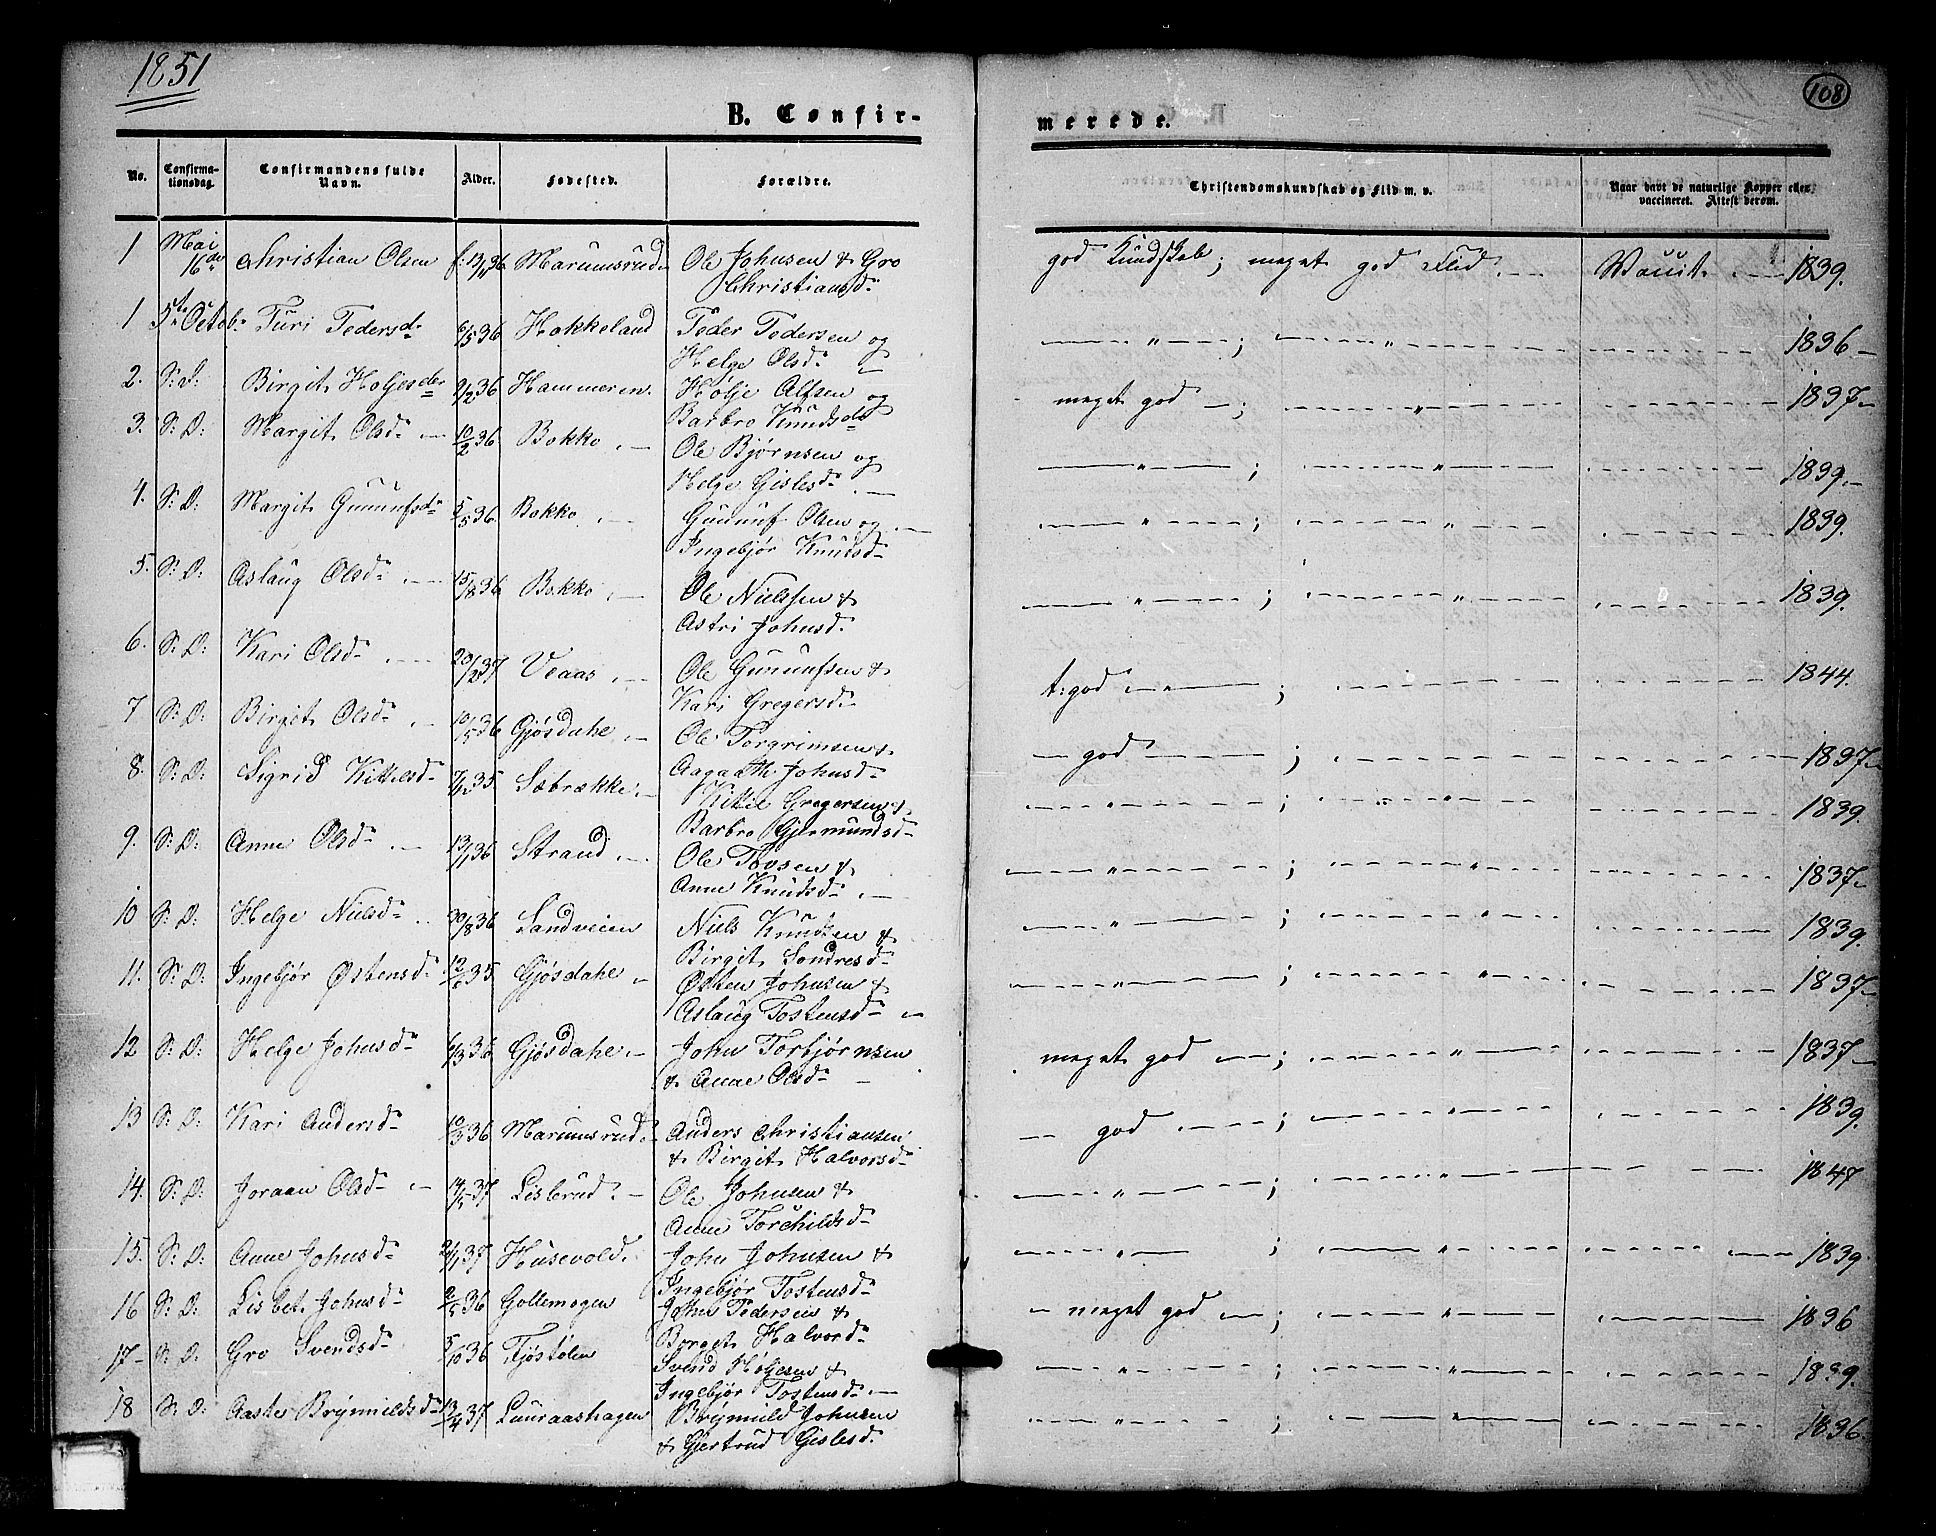 1851
108
B. Confir-
merede.
No.
Confirma-
tionsdag.
Confirmandens fulde
Navn.
Alder.
Fødested.
Forældre.
Christendomskundskab og Flid m. v.
Naar havt de naturlige Kopper eller
vaccineret. Attest derom.
1 Mai 16de Christian Olsen f: 13/11 36 Marumsrud Ole Johnsen & Gro
Christiansd. god Kundskab; meget god Flid. Vaccit. 1839.
1 5te Octob. Turi Pedersd. 6/5 36 Hokkeland Peder Pedersen og
Helge Olsd. — " — ; — " — 1836 —
2. S: D: Birgit Holjesdr 2/2 36 Hammeren. Holje Alfsen og
Barbro Knudsd. meget god — ; — " — 1837 —
3. S: D: Margit Olsd. 10/2 36 Bokko. Ole Bjørnsen og
Helge Gislesd. — " — ; — " — 1839. —
4. S: D: Margit Gunufsd. 5/5 36 Bokko. Gunuf Olsen og
Ingebjør Knudsd. — " — ; — " — 1839.
5. S: D: Aslaug Olsd. 15/8 36 Bokko. Ole Nielssen &
Astri Johnsd. — " — ; — " — 1839.
6. S: D: Kari Olsd. 20/2 37 Veaas. Ole Gunufsen &
Kari Gregersd. t: god — " — ; — 1844.
7 S: D: Birgit Olsd. 10/5 36 Gjøsdahe. Ole Torgrimsen &
Aagaath Johnsd. — god — ; — 1837 —
8. S: D: Sigrid Kittelsd. 35 Sæbrække. Kittel Gregersen &
Barbro Gjermundsd. — " — ; — " — 1839.
9. S: D: Anne Olsd. 13/1 36 Strand. Ole Tovsen &
Anne Knudsd. — " — ; — " — 1837 —
10 S: D: Helge Nielsd. 30/8 36 Sandveien Niels Knudsen &
Birgit Sondresd. — " — ; — " — 1839.
11. S: D: Ingebjør Østensd. 35 Gjøsdahe Østen Johnsen &
Aslaug Tostensd. — " — ; — " — 1837 —
12 S: D: Helge Johnsd. 36 Gjøsdahe. John Torbjørnsen
& Anne Olsd. meget god — ; — " — 1837 —
13 S: D: Kari Andersd. 36 Marumsrud. Anders Christiansen
& Birgit Halvorsd. — god — ; — " — 1839.
14. S: D: Joraan Olsd. 14/5 37 Lislerud. Ole Johnsen &
Anne Torchildsd. — " — ; — " — 1847
15. S: D: Anne Johnsd. 2/1 37 Husevold. John Johnsen &
Ingebjør Tostensd. — " — ; — " — 1839.
16 S: D: Lisbet Johnsd. 2/5 36 Gollemogen John Pedersen &
Borget Halvord. — meget god — ; — " — 1836
17 — S: D: Gro Svendsd. 5/10 36 Fjøstølen Svend Holjesen &
Ingebjør Tostensd. — " — ; — " — 1839.
18 S: D: Aaste Brynuldsd. 13/4 37 Luuraashagen Brynuld Johnsen
& Gjertrud Gislesd. — " — ; — " — 1836.